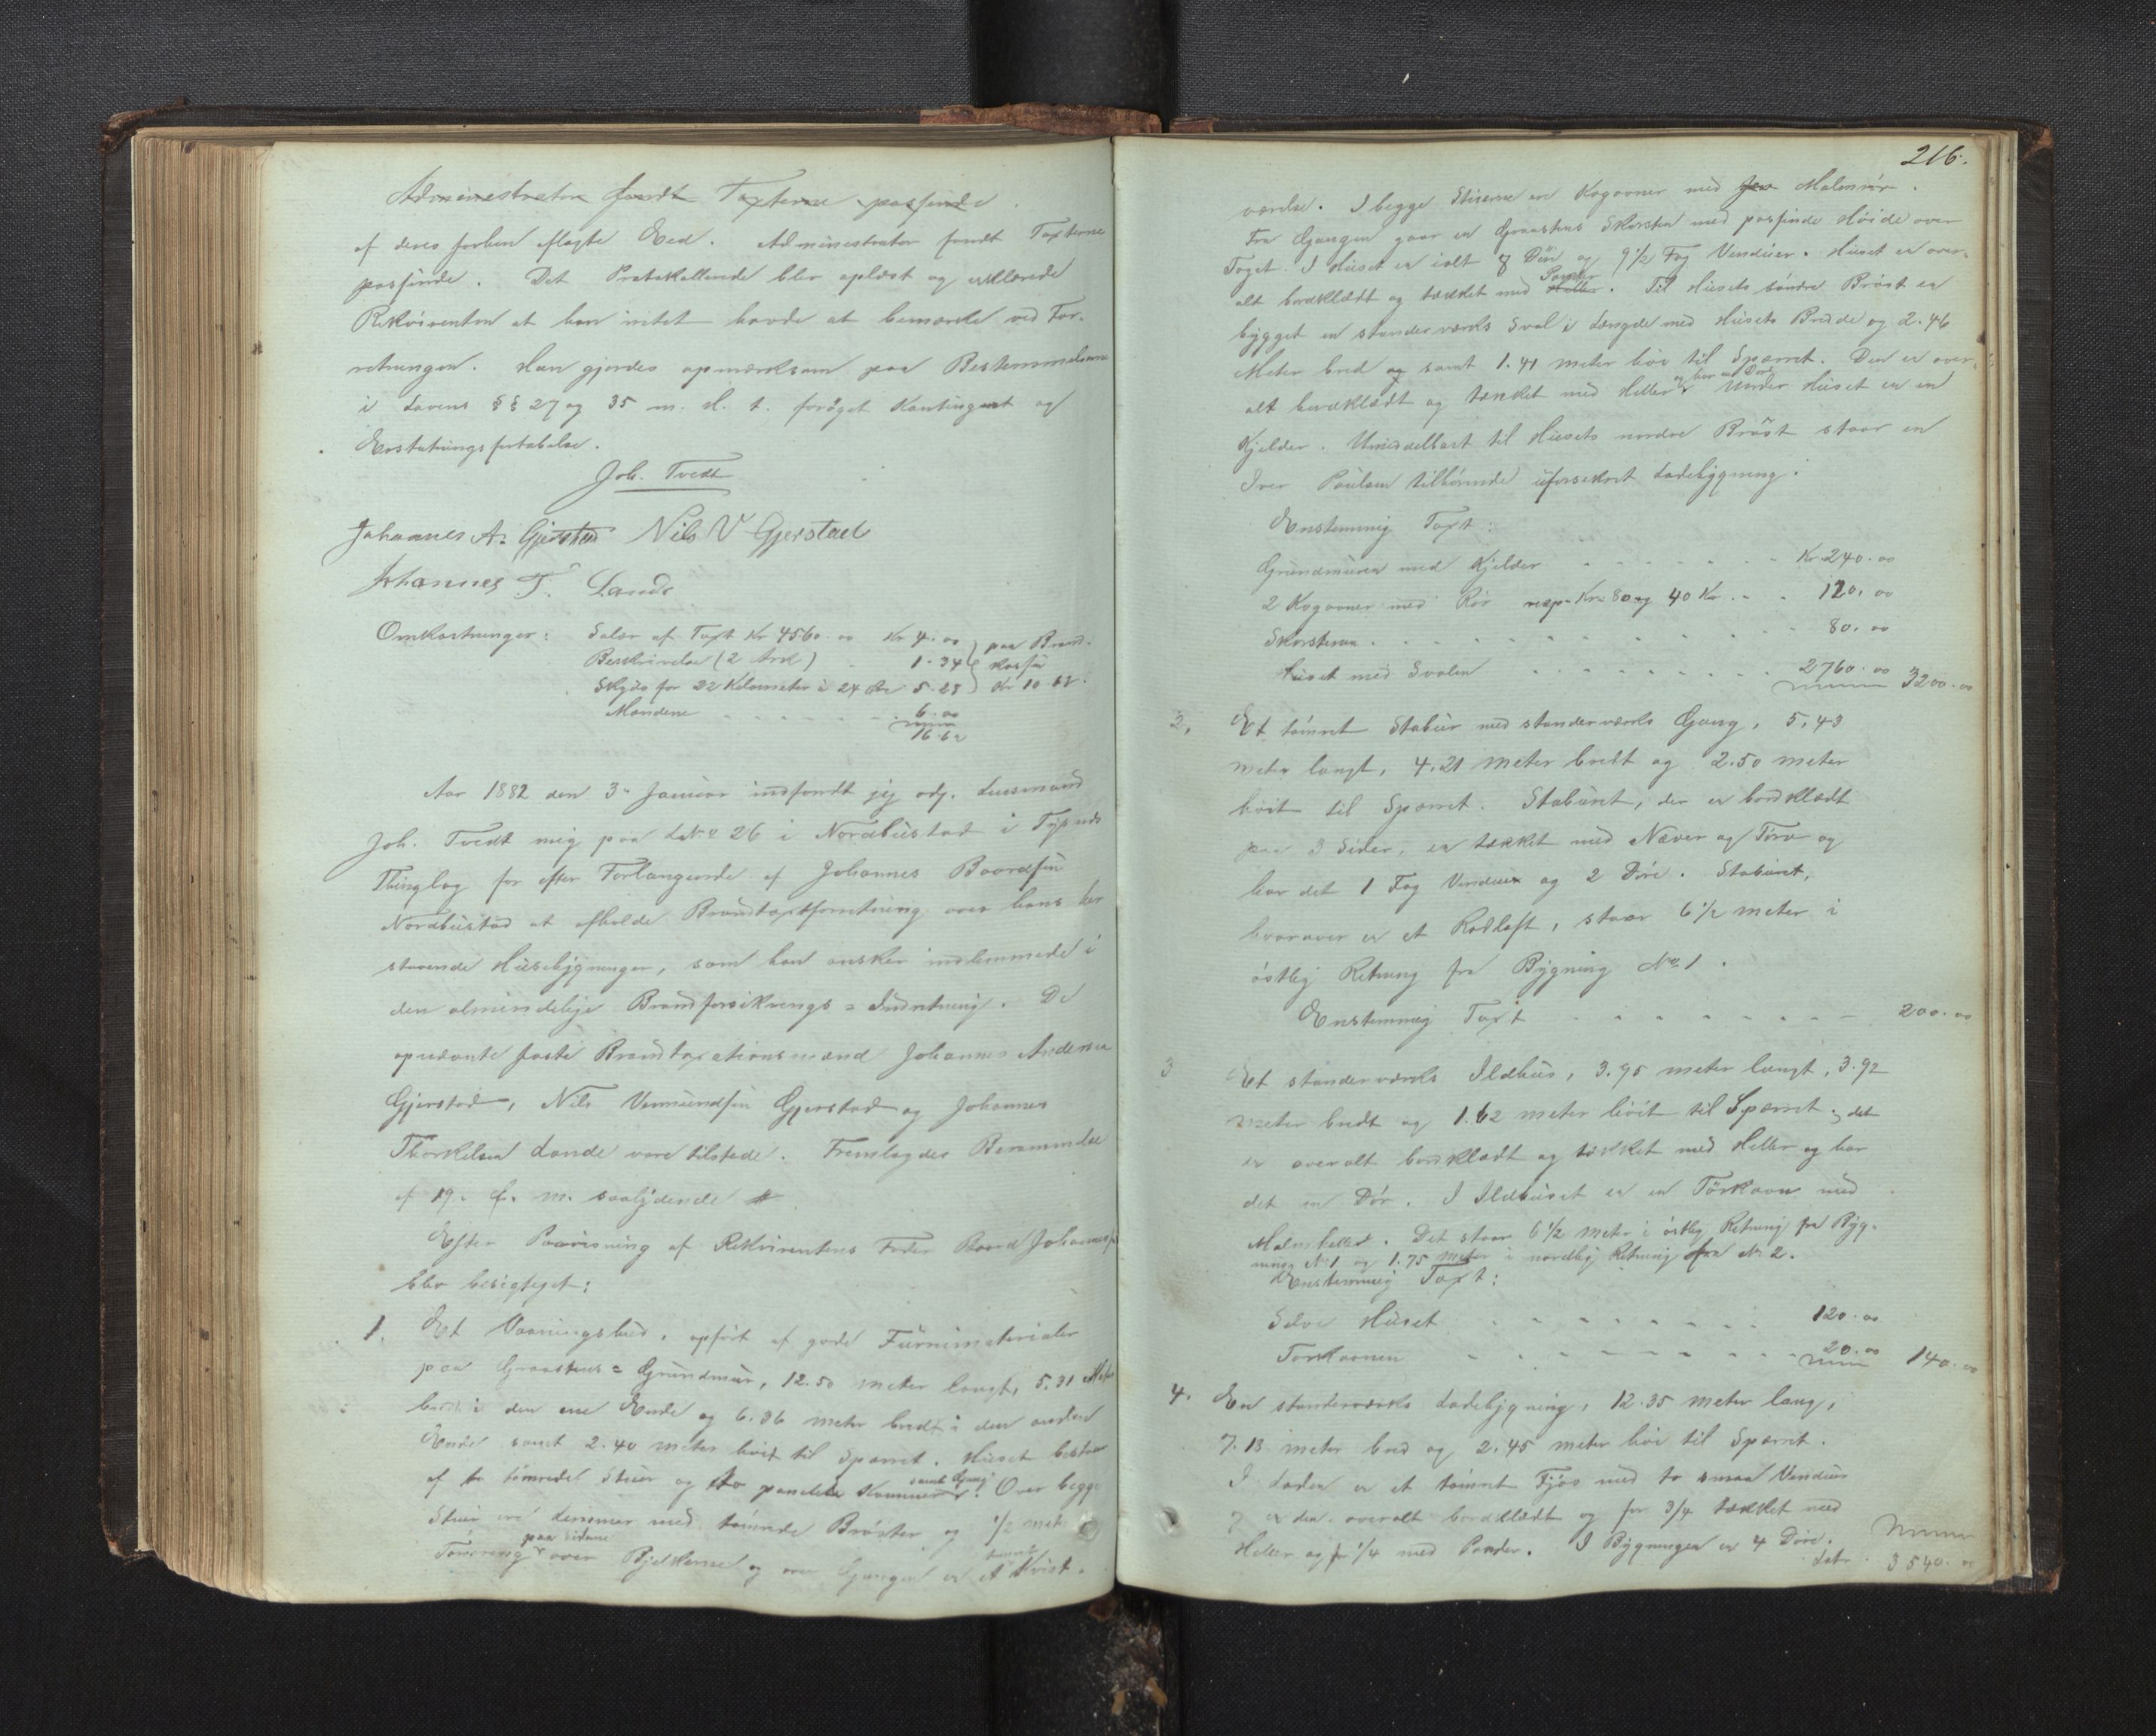 Administrator fandt Taxterne passende.
af deres forhen aflagte Eed. Administrator fandt Taxterne
passende. Det Protokollerede blev oplæst og erklærede
Rekvirenten at han intet havde at bemærke ved For-
retningen. Han gjordes opmærksom paa Bestemmelserne
i Lovens §§ 27 og 35 m. H. t. forøget Kontingent og
Erstatningsfortabelse.
Joh. Tvedt
Johannes A. Gjerstad Nils V Gjerstad
Johannes T. Lande
Omkostninger: Salær af Taxt Kr 4560.00 Kr 4.00
Beskrivelse (2 Ark) 1.34
Skyds for 22 Kilometer à 24 Øre 5.28
paa Brand-
kassen
Kr 10.62.
Mændene 6.00
16.62
Aar 1882 den 3. Januar indfandt jeg odj. Lensmand
Joh. Tvedt mig paa LNo 26 i Nordbustad i
Thinglag for efter Forlangende af Johannes Baardsen
Nordbustad at afholde Brandtaxtforretning over hans her
staaende Husebygninger, som han ønsker indlemmede i
den almindelige Brandforsikrings-Indretning. De
opnævnte faste Brandtaxationsmænd Johannes Andersen
Gjerstad, Nils Vermundsen Gjerstad og Johannes
Thorkelsen Lande vare tilstede. Fremlagdes Berammelse
af 19. f. m. saalydende #
Efter Paavisning af Rekvirentens Fader Baard Johannes
blev besigtiget:
1. Et Vaaningshus, opført af gode Furumaterialer
paa Graastens-Grundmur, 12.50 meter langt, 5.31 Meter
bredt i den ene Ende og 6.36 meter bredt i den anden
Ende samt 2.40 meter høit til Sparret. Huset bestaar
af to tømrede Stuer og to panelede Kammer samt Gang. Over begge
Stuer ere Lemmer med tømrede Brøster og 1/2 meter
Tømring paa Siderne over Bjelkerne og over Gangen er et tømret Kvist-
216.
værelse. I begge Stuerne ere Kogovner med Malmrør.
Fra Gangen gaar en Graastens Skorsten med passende Høide over
Taget. I Huset er ialt 8 Døre og 9 1/2 Fag Vinduer. Huset er over-
alt bordklædt og tækket med Heller Pander. Til Husets søndre Brøst er
bygget en standerværks Sval i Længde med Husets Bredde og 2.46
Meter bred og samt 1.41 meter høi til Sparret. Den er over-
alt bordklædt og tækket med Heller og har en Dør. Under Huset er en
Kjelder. Umiddelbart til Husets nordre Brøst staar en
Iver Poulsen tilhørende uforsikret Ladebygning.
Enstemmig Taxt:
Grundmuren med Kjelder Kr. 240.00
2 Kogovner med Rør resp. Kr. 80 og 40 Kr. 120.00
Skorstenen 80.00
Huset med Svalen 2760.00 3200.00
2. Et tømret Stabur med standerværks Gang, 5,43
meter langt, 4.21 meter bredt og 2.50 meter
høit til Sparret. Staburet, der er bordklædt
paa 3 Sider, er tækket med Næver og Torv og
har det 1 Fag Vinduer og 2 Døre. Staburet,
hvorover er et Rodloft, staar 6 1/2 meter i
østlig Retning fra Bygning No 1.
Enstemmig Taxt 200.00
3 Et standerværks Ildhus, 3.95 meter langt, 3.92
meter bredt og 1.62 meter høit til Sparret; det
er overalt bordklædt og tækket med Heller og har
det en Dør. I Ildhuset er en Tørkovn med
Malmheller. Det staar 6 1/2 meter i østlig Retning fra Byg-
ning No 1 og 1.75 meter i nordlig Retning fra No 2.
Enstemmig Taxt:
Selve Huset 120.00
Tørkovnen 20.00 140.00
4. En standerværks Ladebygning, 12.35 meter lang,
7.13 meter bred og 2.45 meter høi til Sparret.
I Laden er et tømret Fjøs med to smaa Vinduer
og er den overalt bordklædt og for 3/4 tækket med
Heller og for 1/4 med Pander. I Bygningen er 4 Døre.
Latr. 3540.00